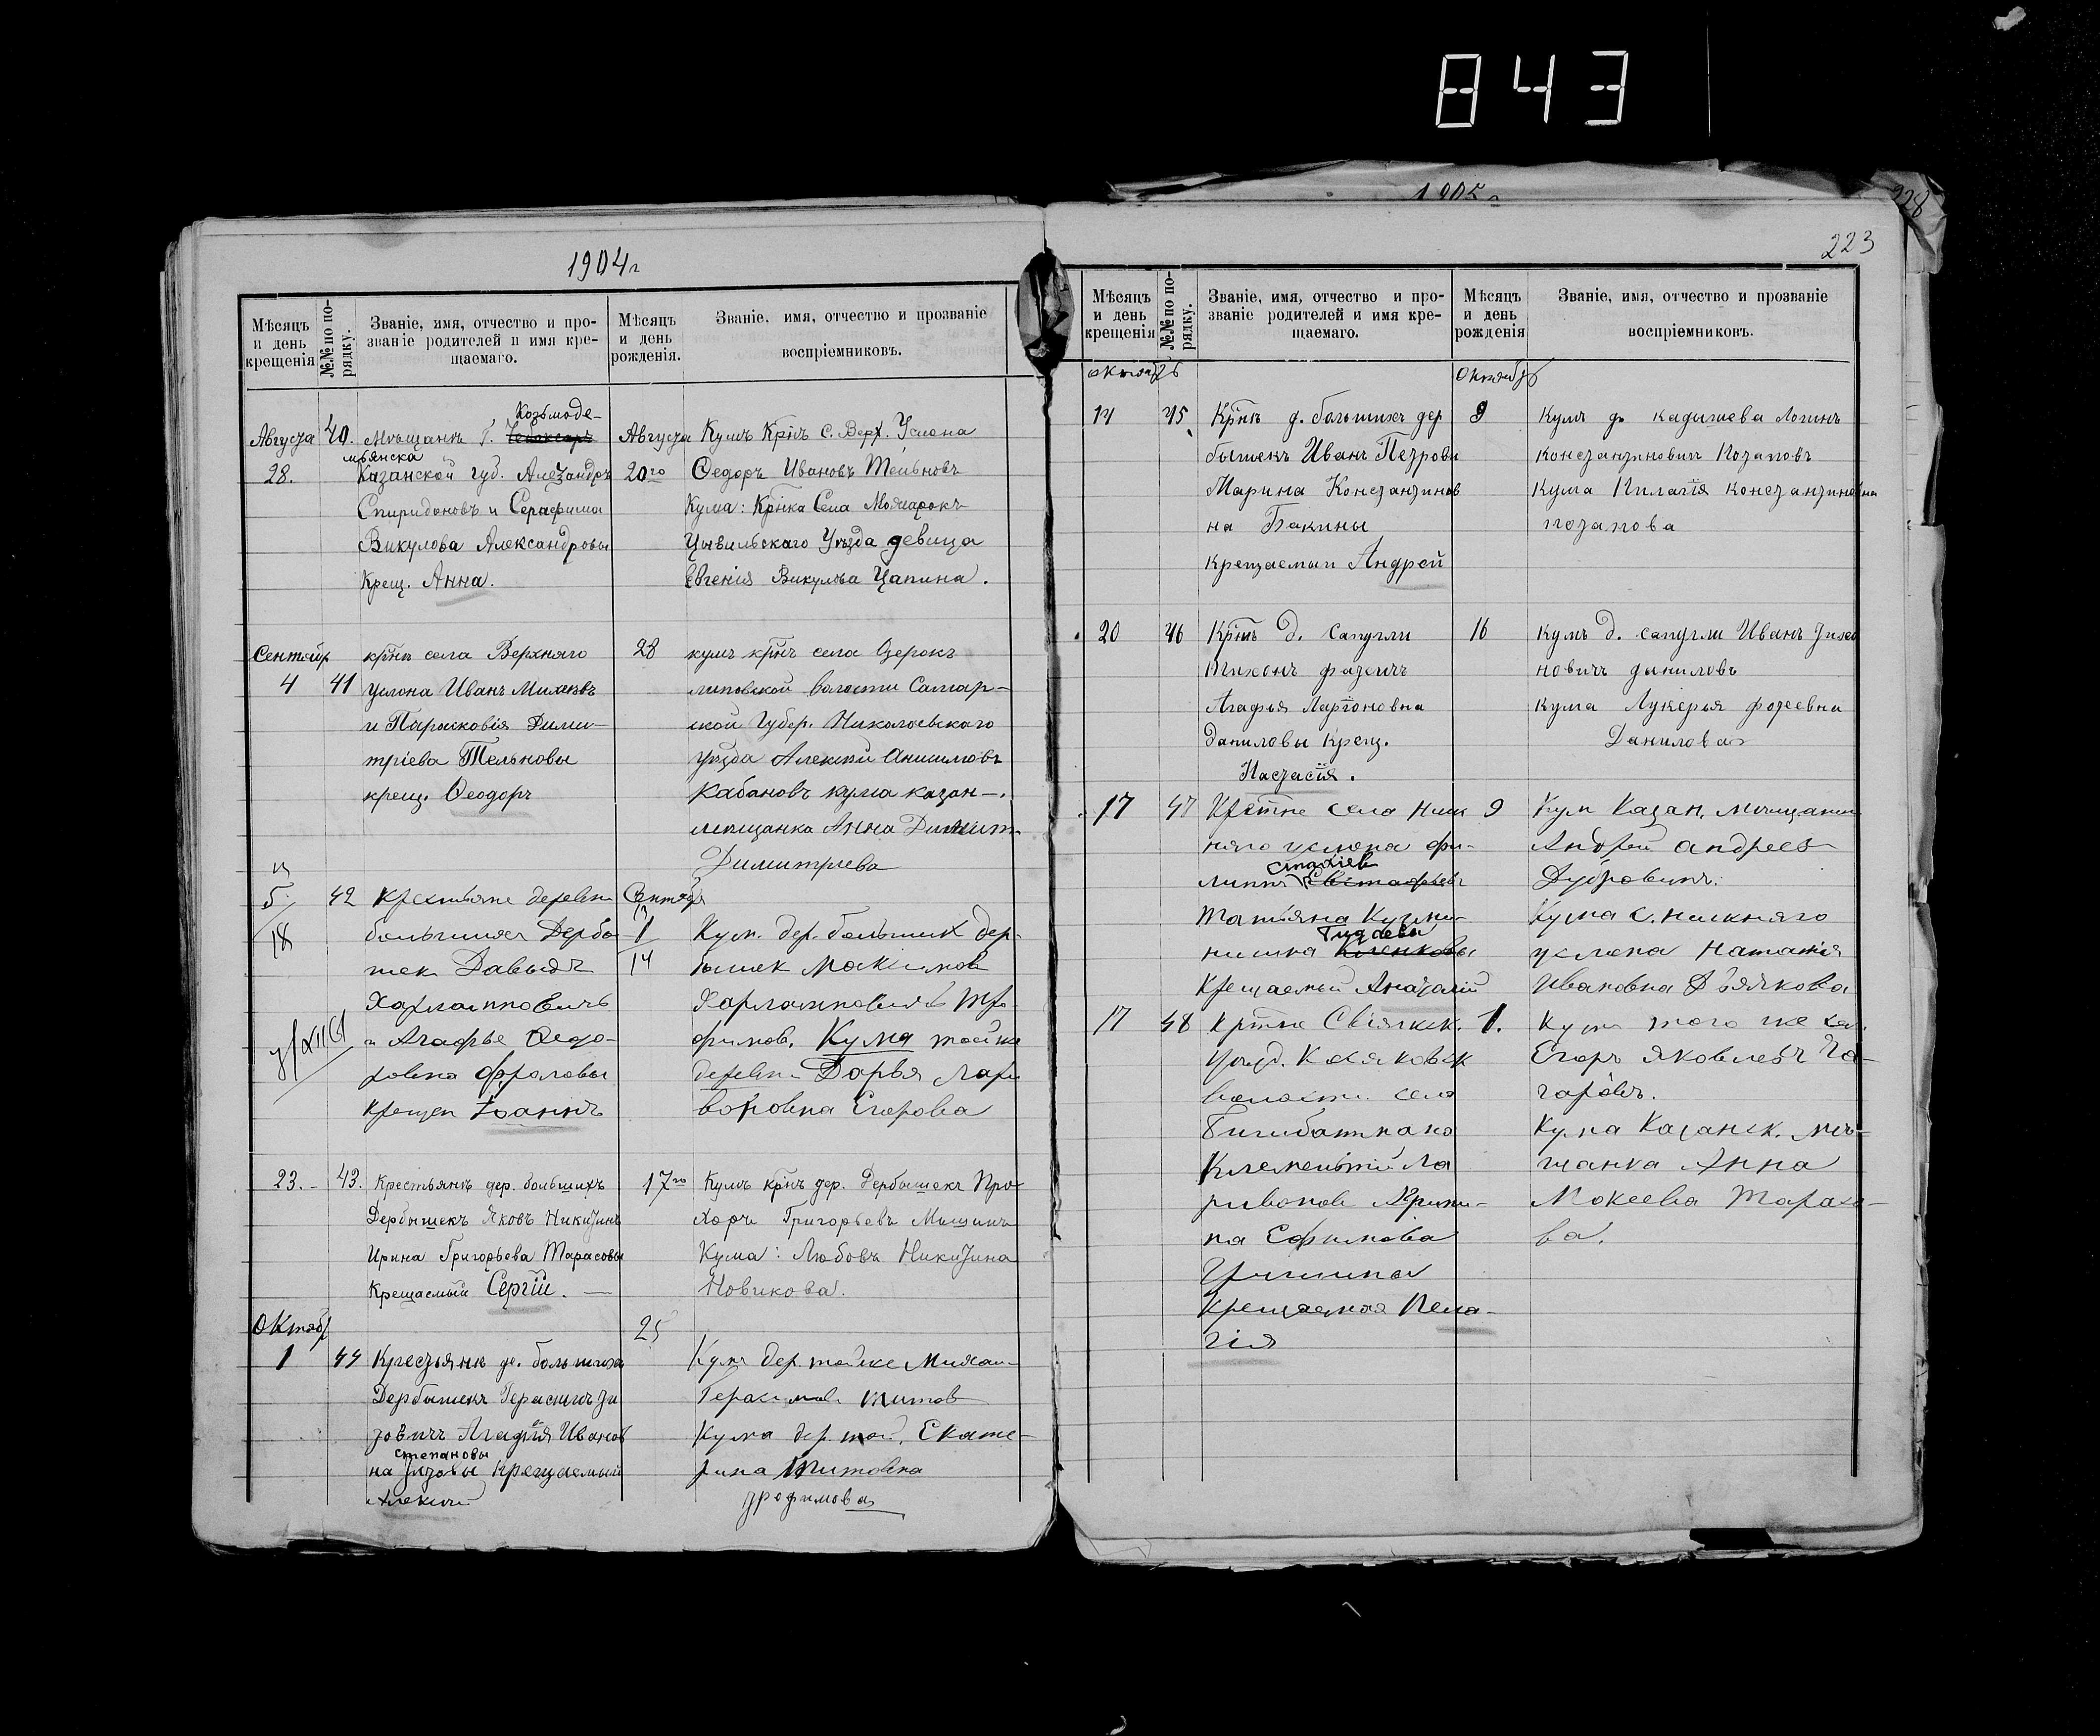 843
1905г
228
1904г
Мѣсяцъ и день крещенія
№№ по порядку.
Званіе, имя, отчество и про-
званіе родителей и имя кре-
щаемаго.
Мѣсяцъ
и день
рожденія.
Званіе, имя, отчество и прозваніе
воспріемниковъ.
Августа 28.
40.
Козьмоде-
Мѣщанинъ г. Чебоксаръ
мьянска
Казанской губ. Александръ
Спиридоновъ и Серафима
Викулова Александровы
Крещ. Анна.
Августа
20го
Кумъ Крнъ С. Верх. Услона
Ѳедоръ Ивановъ Тельновъ
Кума: Крнка Села
Цывильскаго Уѣзда девица
Евгенія Викулова Цапина.
Сентябр
4
41
крнъ села Верхняго
услона Иванъ
и Парасковія Дими-
тріева Тельновы
крещ. Ѳеодоръ
28
кумъ крнъ села
липовской волости Самар-
ской Губер. Николаевскаго
уѣзда Алексѣй Анисимовъ
Кабановъ кума казан-
мещанка Анна
Димитриева
5
18
42
Крестьяне деревни
большихъ Дербы
шек Давыдъ
Харлампповичъ
и Агафье Ѳедо-
ровна Фроловы
Крещен Іоаннъ
Сентябр
1
14
Кум. дер. больших Дер-
бышек Максимов
Харлампповичъ Тро-
фимов. Кума тойже
деревни Дарья Лари
воновна Егорова
23.
43.
Крестьянъ дер. большихъ
Дербышекъ Яковъ Никитинъ
Ирина Григорьева Тарасовы
Крещаемый Сергій.
17го
Кумъ крнъ дер. Дербышекъ Про-
хоръ Григорьевъ Мишинъ
Кума: Любовь Никитина
Новикова.
Октябр
1
44
Крестьянъ де. большихъ
Дербышекъ Герасимъ Ти
товичъ Агафія Иванов
степановы
на Титовы Крещаемый
Алексей
25
Кумъ дер. тойже Михаи
Герасимов. Титов
Кума дер. той. Екате-
рина Титовна
трофимова
223
Мѣсяцъ
и день
крещенія
№№ по порядку.
Званіе, имя, отчество и про-
званіе родителей и имя кре-
щаемаго.
Мѣсяцъ
и день
рожденія
Званіе, имя, отчество и прозваніе
воспріемниковъ.
Октябрь
Октябрь
14
45
Крнъ д. большихъ дер
бышекъ Иванъ Петрови
Марина Константинов
на Бакины
крещаемый Андрей
9
Кумъ дь кадышева Логинъ
Константиновичъ Потаповъ
Кума Пилагія константиновна
потапова
20
46
Крнъ д. сапугли
Тихонъ фатеичъ
Агафья Ларіоновна
Даниловы крещ.
Настасія.
16
Кумъ д. сапугли Иванъ Тихо
новичъ даниловъ
кума Лукерья фотеевна
Данилова
17
47
Крстне села Ниж
няго услона фи-
стахіев
липпъ Евстафьевъ
Татьяна Кузми-
Гудаевы
нишна
Крещаемый Анатолій
9
Кум Казан. мещанин
Андрей андреев
Дубровинъ.
Кума с. нижняго
услона Наталія
Ивановна Дьячкова
17
48
Крстне Свіяжск.
уезд. Косяковск
волости село
Бигибатмано
Клементій Ла
ривонов Ирин-
на Ефимова
Гришина
Крещаемая Пела-
гія
1.
Кум того же сел.
Егоръ Яковлевъ Га-
гаровъ.
Кума Казанск. мѣ-
щанка Анна
Мокеева Тарасо-
ва.